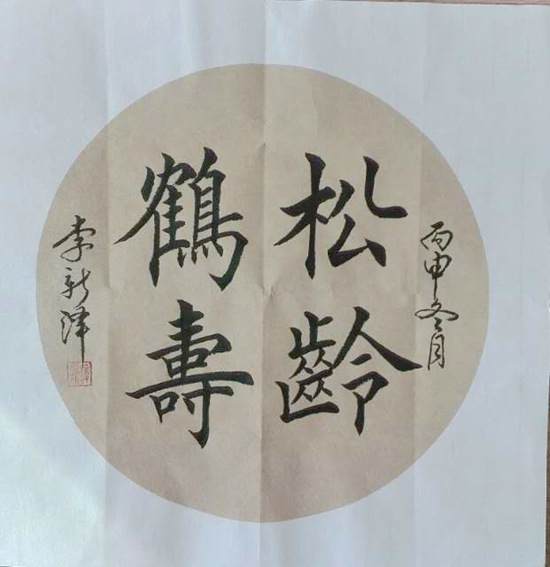 丙申冬月
松齡
鶴壽
李新泽